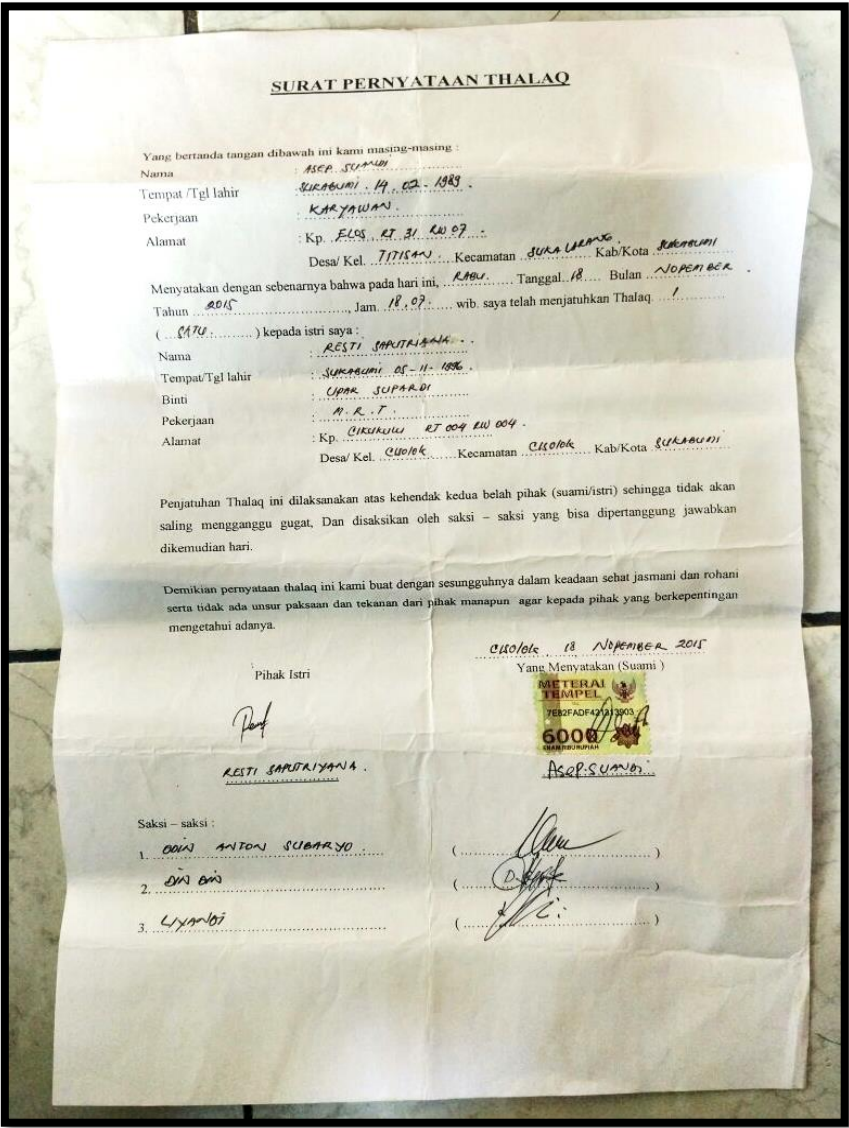 SURAT PERNYATAAN THALAQ
Yang bertanda tangan dibawah ini kami masing-masing :
Nama : ASEP SUANDI
Tempat /Tgl lahir : SUKABUMI . 14 . 02 - 1989 .
Pekerjaan : KARYAWAN .
Alamat : Kp. ELOS , RT 31 RW 07 .
Desa/ Kel. TITISAN . Kecamatan SUKALARANG . Kab/Kota SUKABUMI
Menyatakan dengan sebenarnya bahwa pada hari ini, RABU. Tanggal. 18 Bulan NOPEMBER .
Tahun 2015, Jam. 18.07. wib. saya telah menjatuhkan Thalaq. 1
( SATU ) kepada istri saya :
Nama : RESTI SAPUTRIYANA
Tempat/Tgl lahir : SUKABUMI 05 - 11 - 1996 .
Binti : UPAR SUPARDI
Pekerjaan : M . R . T .
Alamat : Kp. CIKUKULU RT 004 RW 004 .
Desa/ Kel. CISOLOK Kecamatan CISOLOK Kab/Kota SUKABUMI
Penjatuhan Thalaq ini dilaksanakan atas kehendak kedua belah pihak (suami/istri) sehingga tidak akan
saling mengganggu gugat, Dan disaksikan oleh saksi – saksi yang bisa dipertanggung jawabkan
dikemudian hari.
Demikian pernyataan thalaq ini kami buat dengan sesungguhnya dalam keadaan sehat jasmani dan rohani
serta tidak ada unsur paksaan dan tekanan dari pihak manapun agar kepada pihak yang berkepentingan
mengetahui adanya.
CISOLOK , 18 , NOPEMBER 2015
Pihak Istri
Yang Menyatakan (Suami )
METERAI
TEMPEL
7E82FADF421313903
6000
ENAM RIBU RUPIAH
RESTI SAPUTRIYANA .
ASEP SUANDI
Saksi – saksi :
1. ODIN ANTON SUBARYO
2. DIN DIN
3. LIYANDI